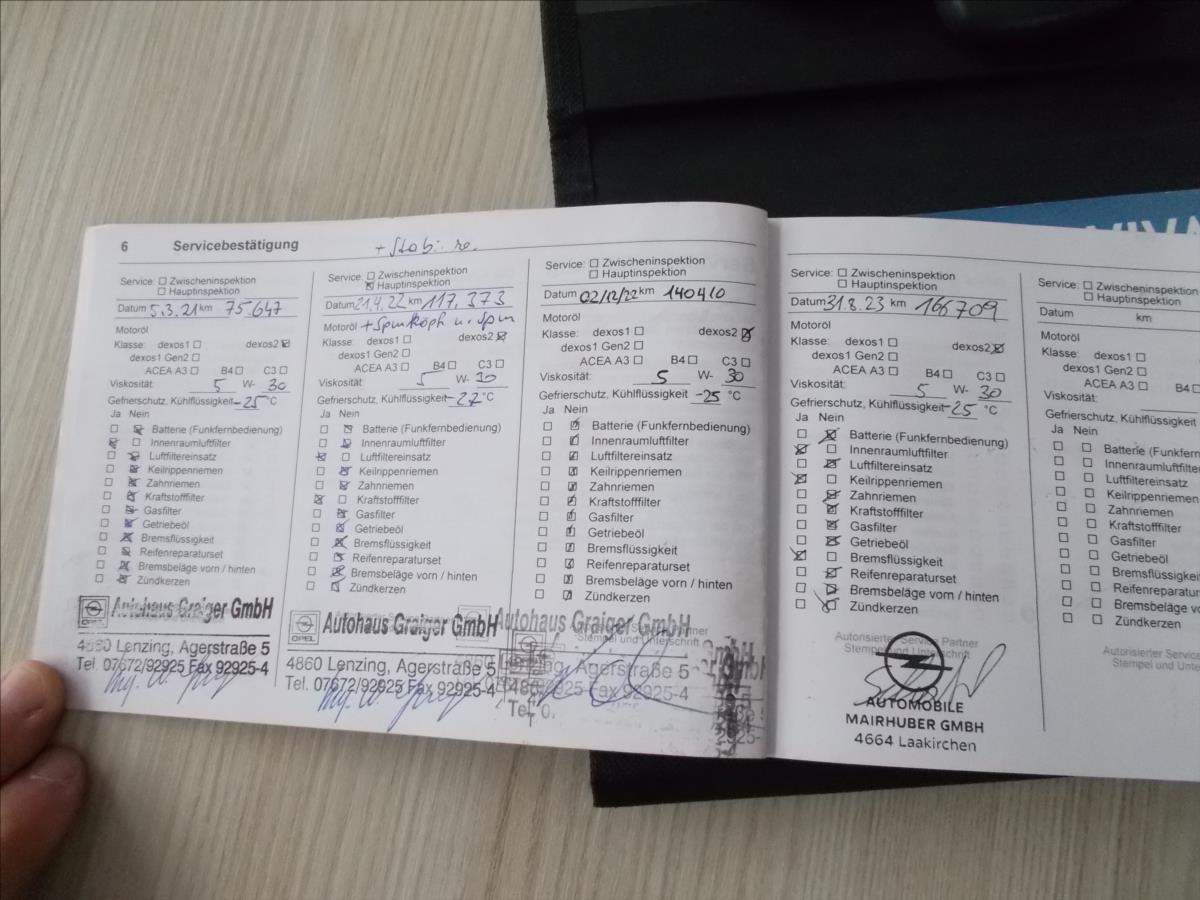 6 Servicebestätigung + Stab. re.
Service: ☐ Zwischeninspektion
☐ Hauptinspektion
Datum 5.3.21 km 75.647
Motoröl
Klasse: dexos1 ☐ dexos2 ☒
dexos1 Gen2 ☐
ACEA A3 ☐ B4 ☐ C3 ☐
Viskosität: 5 W- 30
Gefrierschutz, Kühlflüssigkeit -25 °C
Ja Nein
☐ ☒ Batterie (Funkfernbedienung)
☒ ☐ Innenraumluftfilter
☐ ☒ Luftfiltereinsatz
☐ ☒ Keilrippenriemen
☐ ☒ Zahnriemen
☐ ☒ Kraftstofffilter
☐ ☒ Gasfilter
☐ ☒ Getriebeöl
☐ ☒ Bremsflüssigkeit
☐ ☒ Reifenreparaturset
☐ ☒ Bremsbeläge vorn / hinten
☐ ☒ Zündkerzen
Autohaus Graiger GmbH
4860 Lenzing, Agerstraße 5
Tel. 07672/92925 Fax 92925-4
Service: ☐ Zwischeninspektion
☒ Hauptinspektion
Datum 21.4.22 km 117.373
Motoröl + Spurkopf u. Spur
Klasse: dexos1 ☐ dexos2 ☒
dexos1 Gen2 ☐
ACEA A3 ☐ B4 ☐ C3 ☐
Viskosität: 5 W- 30
Gefrierschutz, Kühlflüssigkeit -27 °C
Ja Nein
☐ ☒ Batterie (Funkfernbedienung)
☐ ☒ Innenraumluftfilter
☒ ☐ Luftfiltereinsatz
☐ ☒ Keilrippenriemen
☐ ☒ Zahnriemen
☒ ☐ Kraftstofffilter
☐ ☒ Gasfilter
☐ ☒ Getriebeöl
☐ ☒ Bremsflüssigkeit
☐ ☒ Reifenreparaturset
☐ ☒ Bremsbeläge vorn / hinten
☐ ☒ Zündkerzen
OPEL
Autohaus Graiger GmbH
4860 Lenzing, Agerstraße 5
Tel. 07672/92925 Fax 92925-4
Service: ☐ Zwischeninspektion
☐ Hauptinspektion
Datum 02/12/22 km 140410
Motoröl
Klasse: dexos1 ☐ dexos2 ☒
dexos1 Gen2 ☐
ACEA A3 ☐ B4 ☐ C3 ☐
Viskosität: 5 W- 30
Gefrierschutz, Kühlflüssigkeit -25 °C
Ja Nein
☐ ☒ Batterie (Funkfernbedienung)
☐ ☒ Innenraumluftfilter
☐ ☒ Luftfiltereinsatz
☐ ☒ Keilrippenriemen
☐ ☒ Zahnriemen
☐ ☒ Kraftstofffilter
☐ ☒ Gasfilter
☐ ☒ Getriebeöl
☐ ☒ Bremsflüssigkeit
☐ ☒ Reifenreparaturset
☐ ☒ Bremsbeläge vorn / hinten
☐ ☒ Zündkerzen
Autohaus Graiger GmbH
Lenzing, Agerstraße 5
Service: ☐ Zwischeninspektion
☐ Hauptinspektion
Datum 31.8.23 km 166709
Motoröl
Klasse: dexos1 ☐ dexos2 ☒
dexos1 Gen2 ☐
ACEA A3 ☐ B4 ☐ C3 ☐
Viskosität: 5 W- 30
Gefrierschutz, Kühlflüssigkeit -25 °C
Ja Nein
☐ ☒ Batterie (Funkfernbedienung)
☒ ☐ Innenraumluftfilter
☐ ☒ Luftfiltereinsatz
☒ ☐ Keilrippenriemen
☐ ☒ Zahnriemen
☐ ☒ Kraftstofffilter
☐ ☒ Gasfilter
☐ ☒ Getriebeöl
☒ ☐ Bremsflüssigkeit
☐ ☒ Reifenreparaturset
☐ ☒ Bremsbeläge vorn / hinten
☐ ☒ Zündkerzen
Autorisierter Service Partner
Stempel und Unterschrift
AUTOMOBILE
MAIRHUBER GMBH
4664 Laakirchen
Service: ☐ Zwischeninspektion
☐ Hauptinspektion
Datum km
Motoröl
Klasse: dexos1 ☐
dexos1 Gen2 ☐
ACEA A3 ☐ B4
Viskosität:
Gefrierschutz, Kühlflüssigkeit
Ja Nein
☐ ☐ Batterie (Funkfern
☐ ☐ Innenraumluftfilter
☐ ☐ Luftfiltereinsatz
☐ ☐ Keilrippenriemen
☐ ☐ Zahnriemen
☐ ☐ Kraftstofffilter
☐ ☐ Gasfilter
☐ ☐ Getriebeöl
☐ ☐ Bremsflüssigkei
☐ ☐ Reifenreparatur
☐ ☐ Bremsbeläge vo
☐ ☐ Zündkerzen
Autorisierter Service
Stempel und Unte